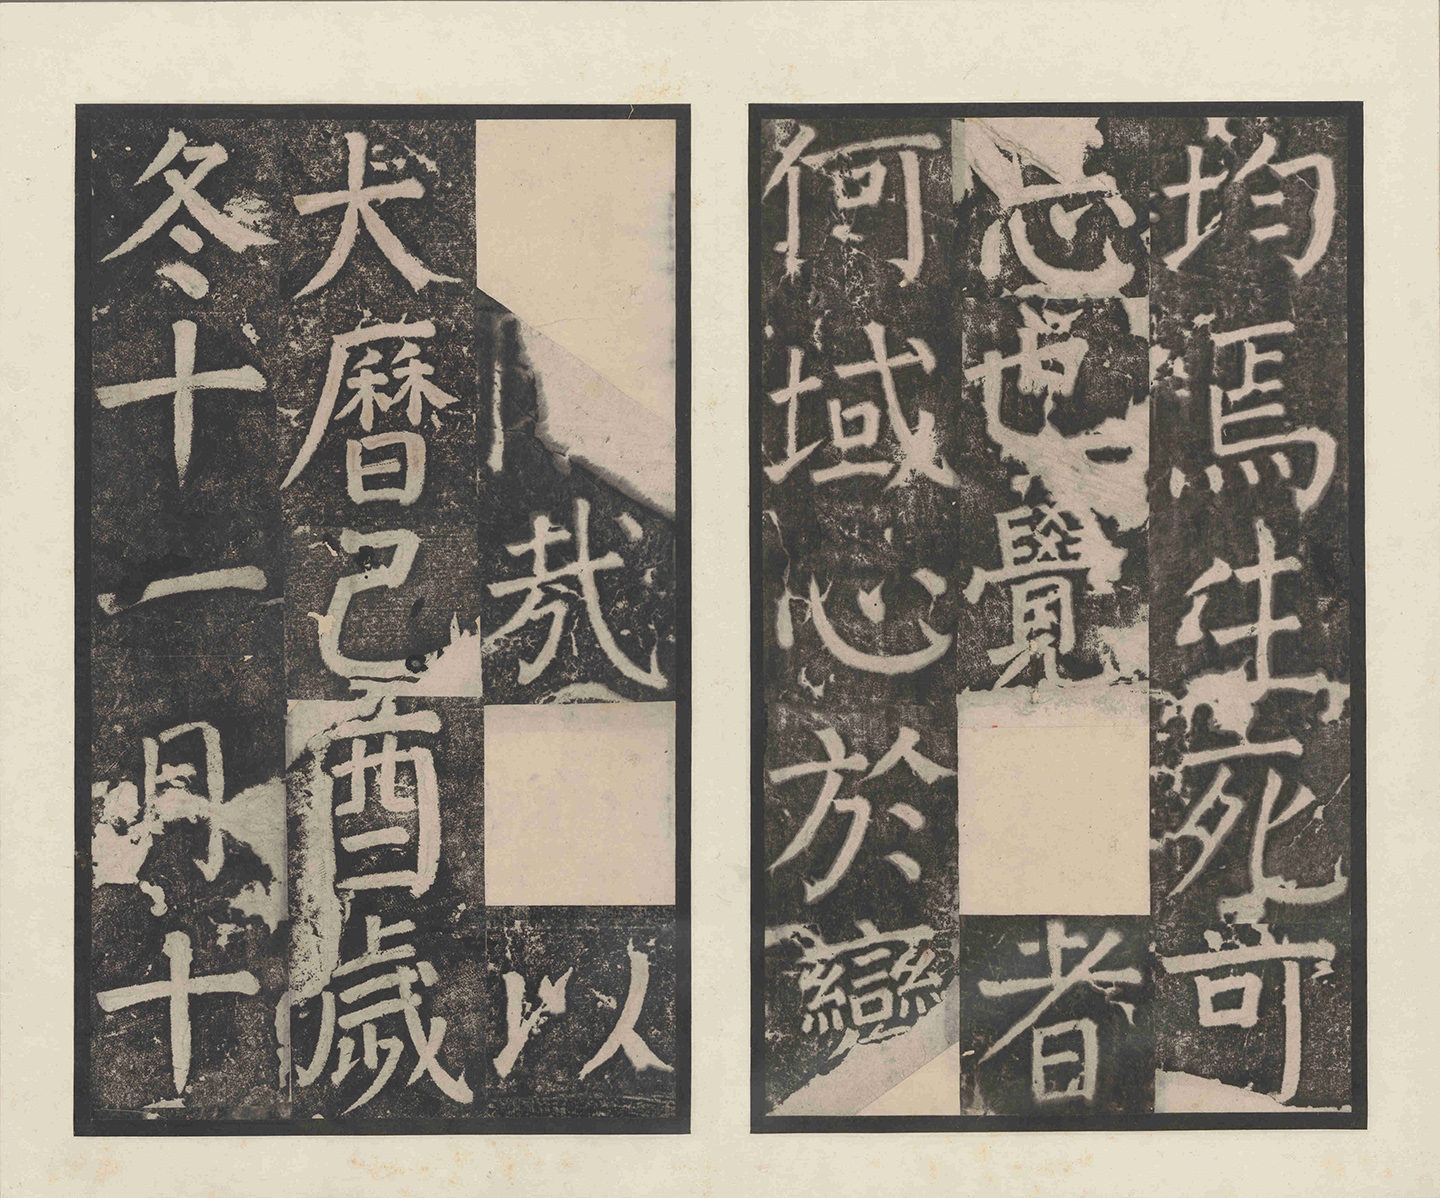 均焉生死可
忘也覺者
何域心於
哉以
大曆己酉歲
冬十一月十